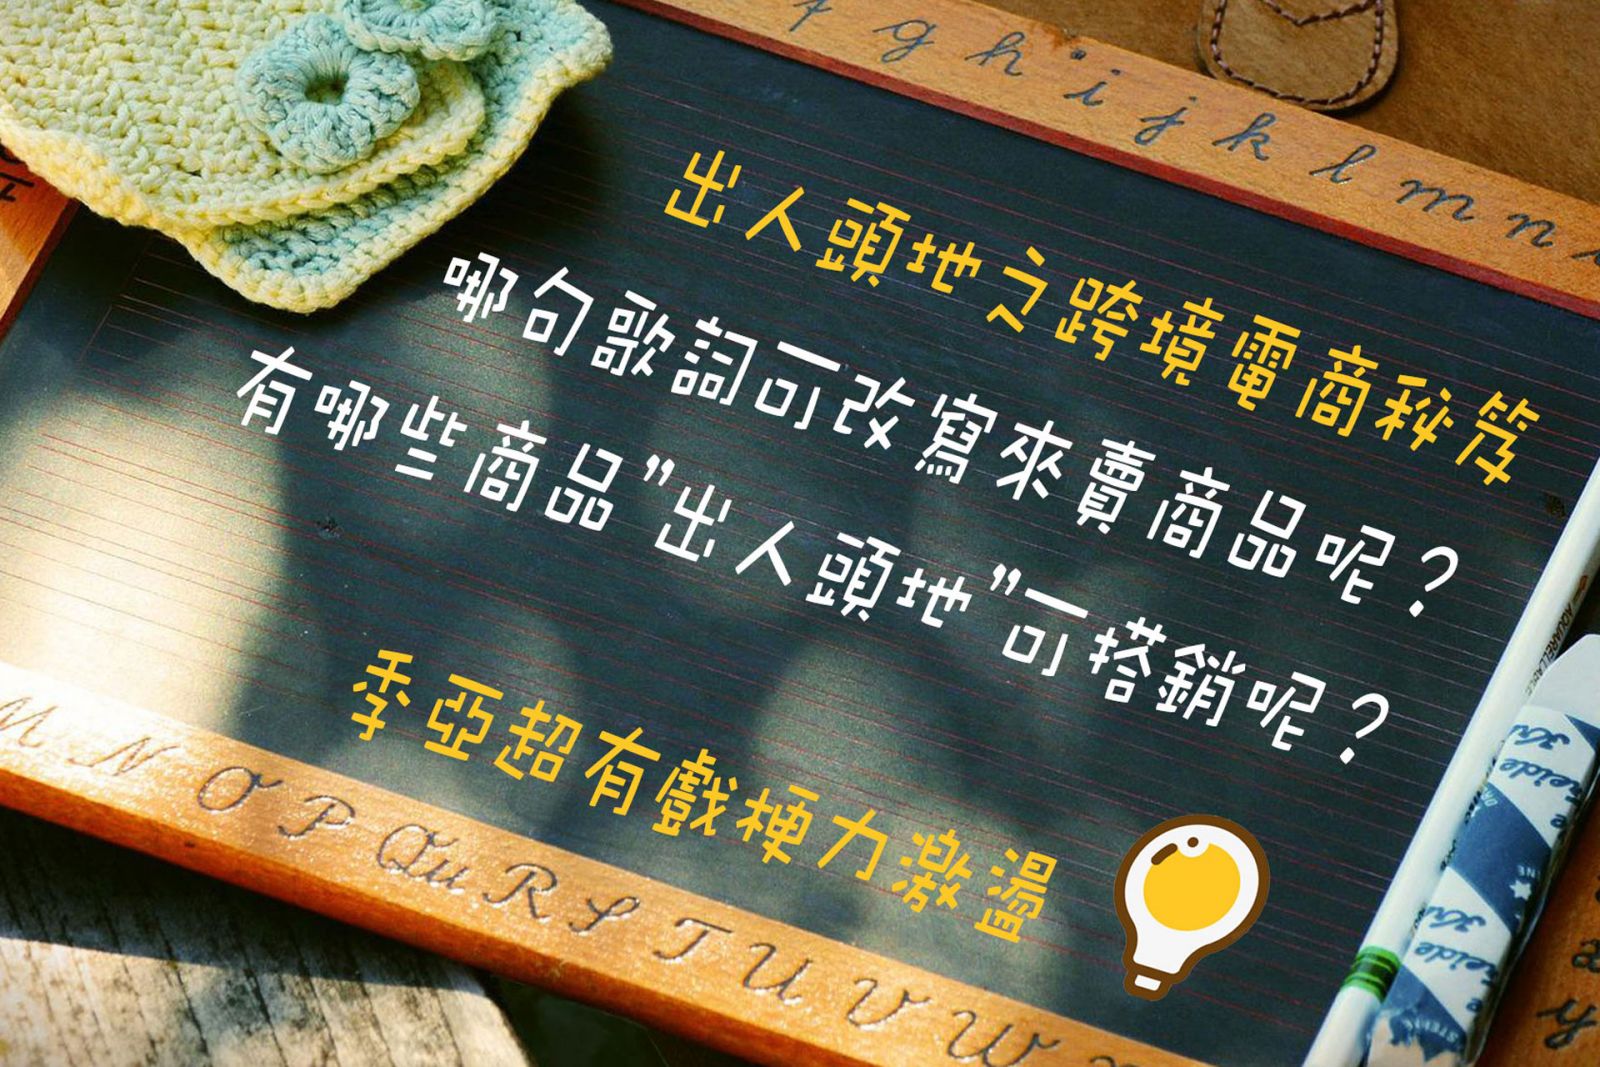 f g h i j k l m n
出人頭地之跨境電商秘笈
哪句歌詞可改寫來賣商品呢？
有哪些商品"出人頭地"可搭銷呢？
季亞超有戲梗力激盪
M N O P Qu R S T U V W